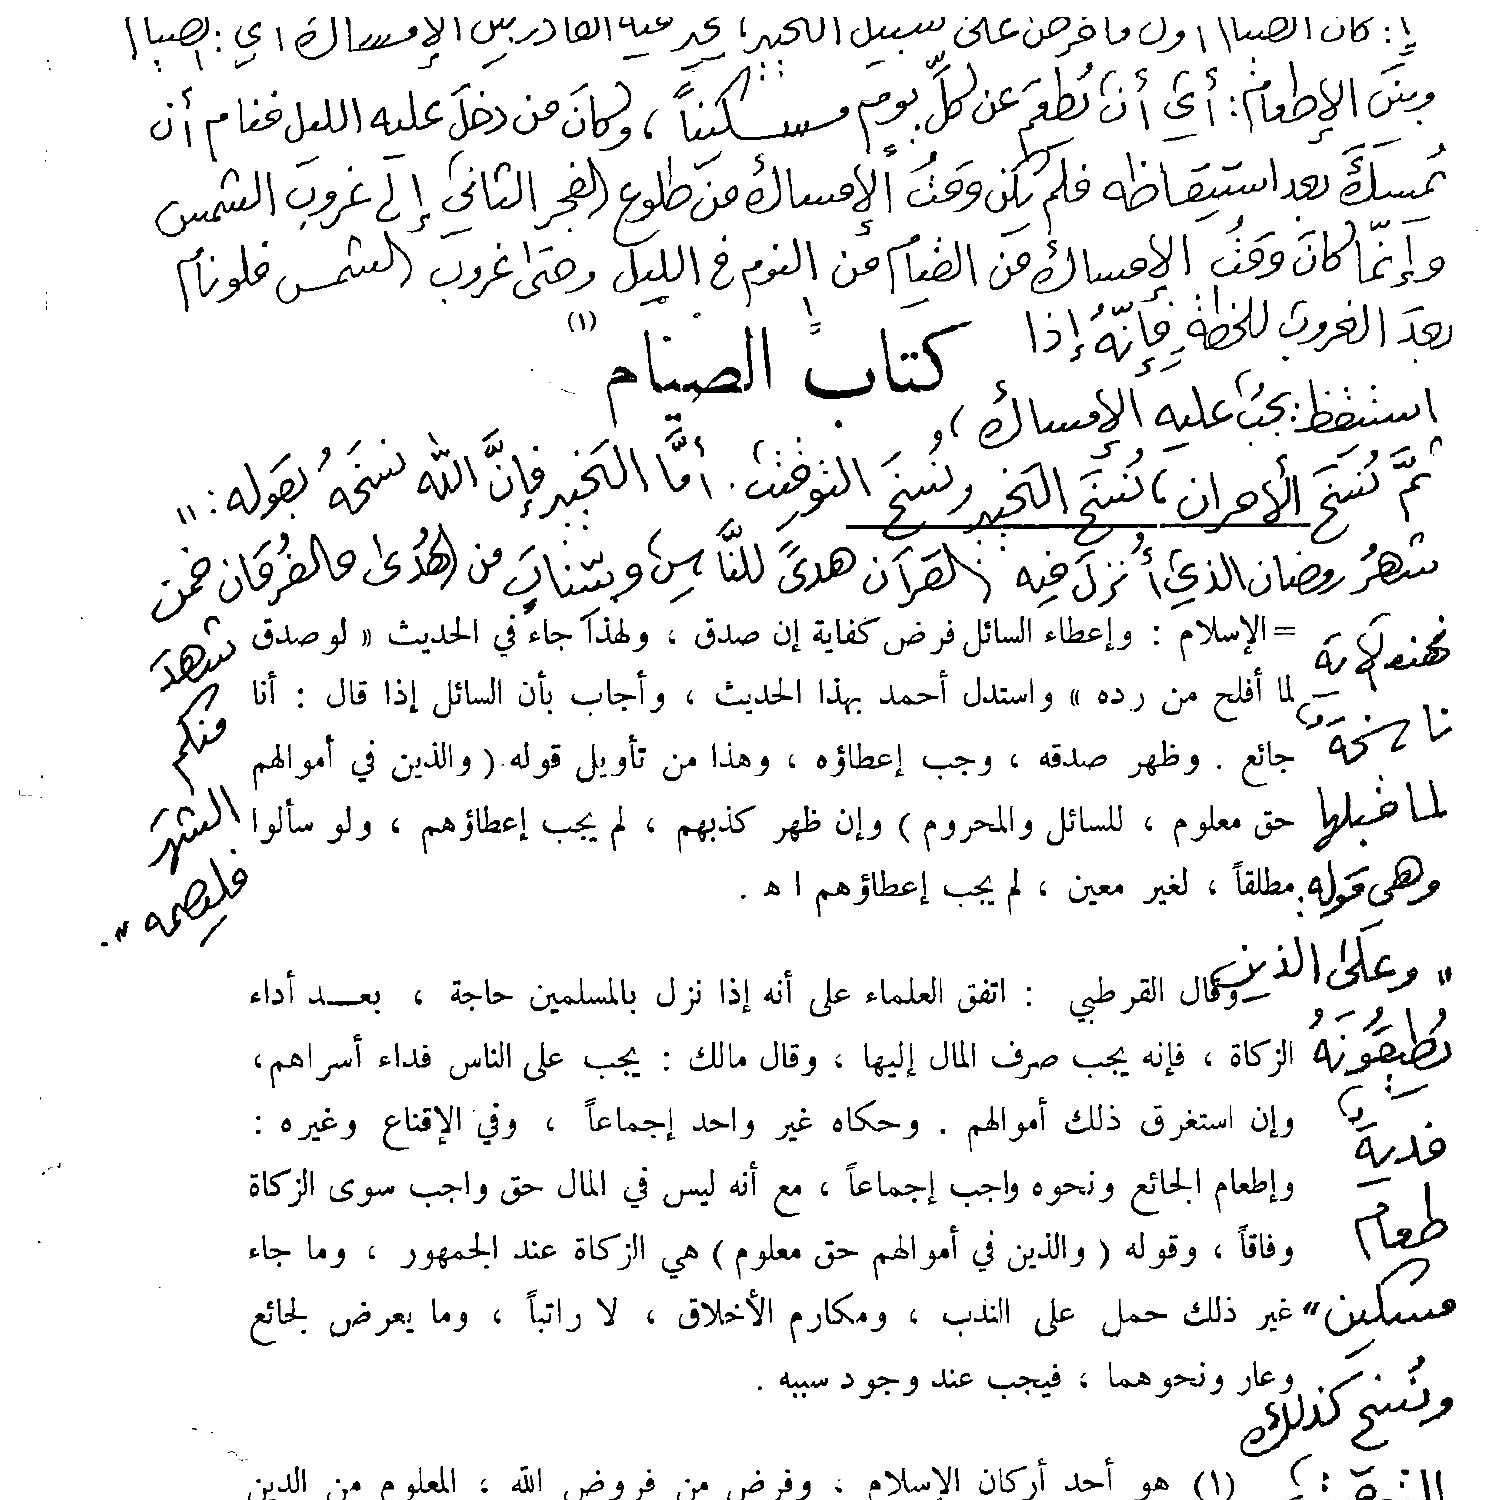 كان الصيام أول ما فرض على سبيل التخيير، يخير فيه القادر بين الإمساك أي: الصيام
وبين الإطعام: أي أن يُطعم عن كلِّ يومٍ مسكيناً، وكان من دخلَ عليه الليل فنام أن
يُمسكَ بعد استيقاظه فلم يكن وقتُ الإمساك من طلوع الفجر الثاني إلى غروب الشمس
وإنّما كانَ وقتُ الإمساك من القيام من النوم في الليل وحتى غروب الشمس فلو نام
بعدَ الغروب للحظةٍ فإنّهُ إذا
(١)
كتاب الصيام
استيقظ: يجبُ عليه الإمساك،
ثمَّ نُسخَ الأمران، نُسخَ التخيير ونُسخَ التوقيت. أمَّا التخيير فإنَّ الله نسخَهُ بقوله: "
شهرُ رمضان الذي أُنزلَ فيه القرآن هدىً للنَّاسِ وبيّناتٍ من الهُدى والفرقان فمن
شهدَ
منكم
الشهرَ
فليصمه".
فهذه الآية
ناسخةٌ
لما قبلها
وهي قوله:
"وعلى الذين
يُطيقُونَهُ
فديةٌ
طعام
مسكين"
ونُسخ كذلك
= الإسلام : وإعطاء السائل فرض كفاية إن صدق ، ولهذا جاء في الحديث « لو صدق
لما أفلح من رده » واستدل أحمد بهذا الحديث ، وأجاب بأن السائل إذا قال : أنا
جائع . وظهر صدقه ، وجب إعطاؤه ، وهذا من تأويل قوله ( والذين في أموالهم
حق معلوم ، للسائل والمحروم ) وإن ظهر كذبهم ، لم يجب إعطاؤهم ، ولو سألوا
مطلقاً ، لغير معين ، لم يجب إعطاؤهم اﻫ .
وقال القرطبي : اتفق العلماء على أنه إذا نزل بالمسلمين حاجة ، بعـــد أداء
الزكاة ، فإنه يجب صرف المال إليها ، وقال مالك : يجب على الناس فداء أسراهم،
وإن استغرق ذلك أموالهم . وحكاه غير واحد إجماعاً ، وفي الإقناع وغيره :
وإطعام الجائع ونحوه واجب إجماعاً ، مع أنه ليس في المال حق واجب سوى الزكاة
وفاقاً ، وقوله ( والذين في أموالهم حق معلوم ) هي الزكاة عند الجمهور ، وما جاء
غير ذلك حمل على الندب ، ومكارم الأخلاق ، لا راتباً ، وما يعرض لجائع
وعار ونحوهما ، فيجب عند وجود سببه .
(١) هو أحد أركان الإسلام ، وفرض من فروض الله ، المعلوم من الدين